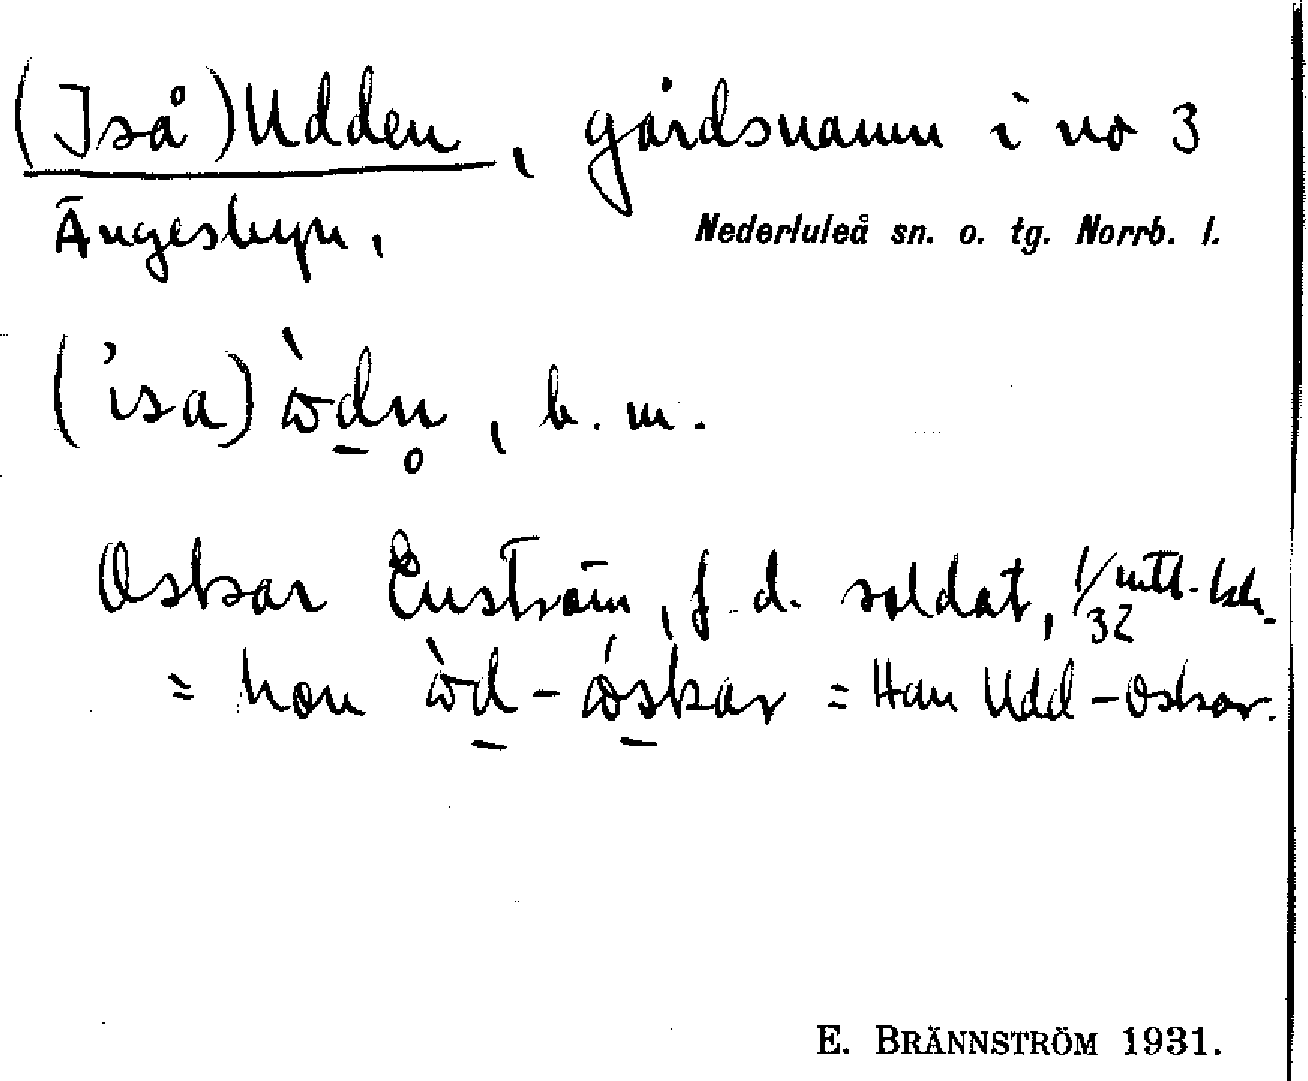 (Iså)Udden, gårdsnamn i no 3
Ängesbyn,
Nederluleå sn. o. tg. Norrb. l.
('isa) ὼdn̥, b. m.
Oskar Enström, f. d. soldat, 1/32 mtl.
= han ὼd-ώskar = Han Udd-Oskar.
E. BRÄNNSTRÖM 1931.